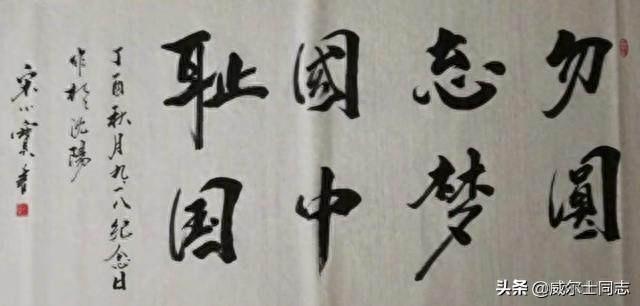 勿忘國耻
圓梦中国
丁酉秋月九一八纪念日
作於沈陽
宋小寳书
头条 @威尔士同志